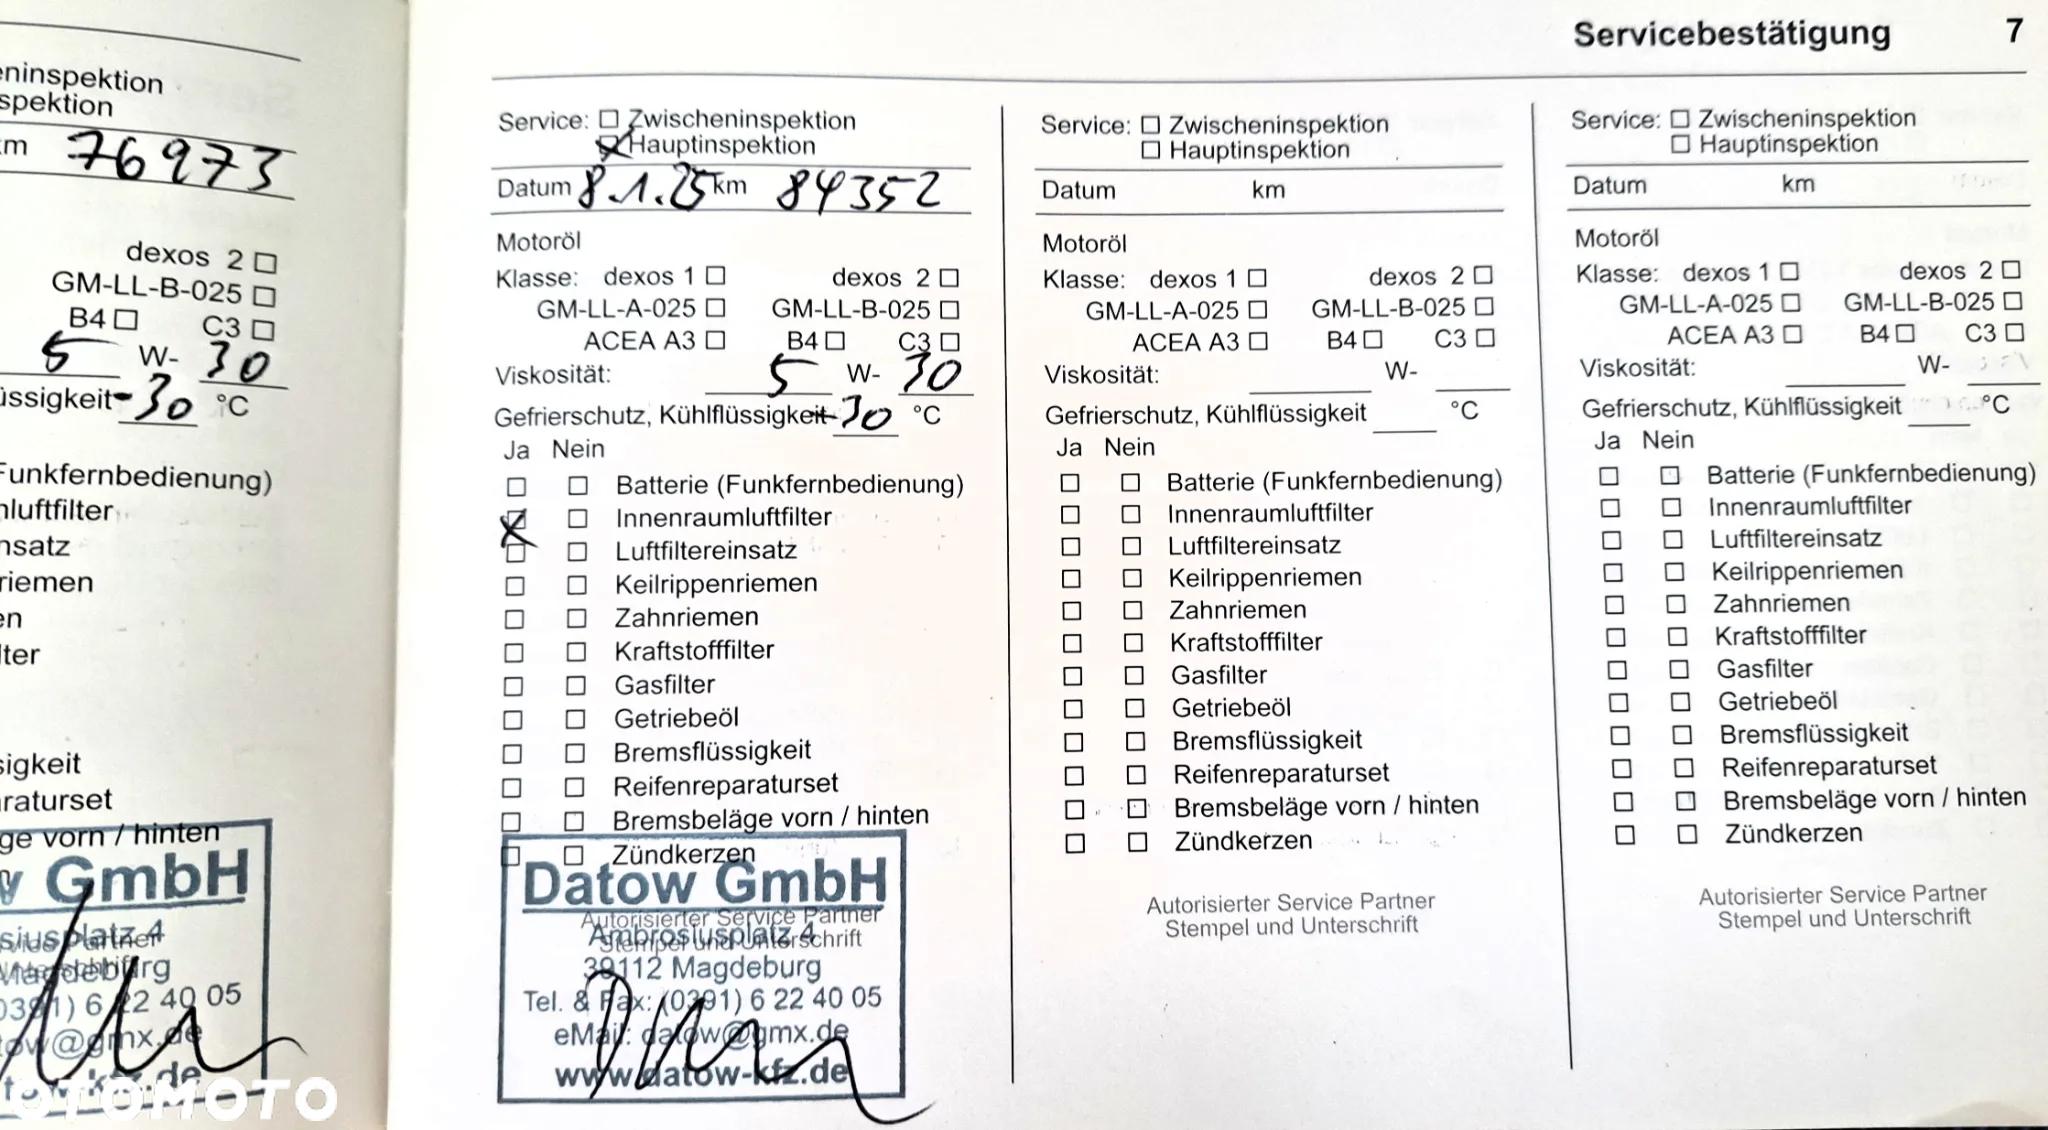 eninspektion
spektion
km 76973
dexos 2
GM-LL-B-025
B4 C3
5 W- 30
üssigkeit -30 °C
Funkfernbedienung)
nluftfilter
nsatz
riemen
en
lter
sigkeit
raturset
ge vorn / hinten
w GmbH
siusplatz 4
Magdeburg
0391) 6 22 40 05
tow@gmx.de
OTOMOTO
Servicebestätigung 7
Service: Zwischeninspektion
Hauptinspektion
Datum 8.1.25 km 84352
Motoröl
Klasse: dexos 1 dexos 2
GM-LL-A-025 GM-LL-B-025
ACEA A3 B4 C3
Viskosität: 5 W- 30
Gefrierschutz, Kühlflüssigkeit -30 °C
Ja Nein
Batterie (Funkfernbedienung)
Innenraumluftfilter
Luftfiltereinsatz
Keilrippenriemen
Zahnriemen
Kraftstofffilter
Gasfilter
Getriebeöl
Bremsflüssigkeit
Reifenreparaturset
Bremsbeläge vorn / hinten
Zündkerzen
Datow GmbH
Autorisierter Service Partner
Ambrosiusplatz 4
Stempel und Unterschrift
39112 Magdeburg
Tel. & Fax: (0391) 6 22 40 05
eMail: datow@gmx.de
www.datow-kfz.de
Service: Zwischeninspektion
Hauptinspektion
Datum km
Motoröl
Klasse: dexos 1 dexos 2
GM-LL-A-025 GM-LL-B-025
ACEA A3 B4 C3
Viskosität: W-
Gefrierschutz, Kühlflüssigkeit °C
Ja Nein
Batterie (Funkfernbedienung)
Innenraumluftfilter
Luftfiltereinsatz
Keilrippenriemen
Zahnriemen
Kraftstofffilter
Gasfilter
Getriebeöl
Bremsflüssigkeit
Reifenreparaturset
Bremsbeläge vorn / hinten
Zündkerzen
Autorisierter Service Partner
Stempel und Unterschrift
Service: Zwischeninspektion
Hauptinspektion
Datum km
Motoröl
Klasse: dexos 1 dexos 2
GM-LL-A-025 GM-LL-B-025
ACEA A3 B4 C3
Viskosität: W-
Gefrierschutz, Kühlflüssigkeit °C
Ja Nein
Batterie (Funkfernbedienung)
Innenraumluftfilter
Luftfiltereinsatz
Keilrippenriemen
Zahnriemen
Kraftstofffilter
Gasfilter
Getriebeöl
Bremsflüssigkeit
Reifenreparaturset
Bremsbeläge vorn / hinten
Zündkerzen
Autorisierter Service Partner
Stempel und Unterschrift